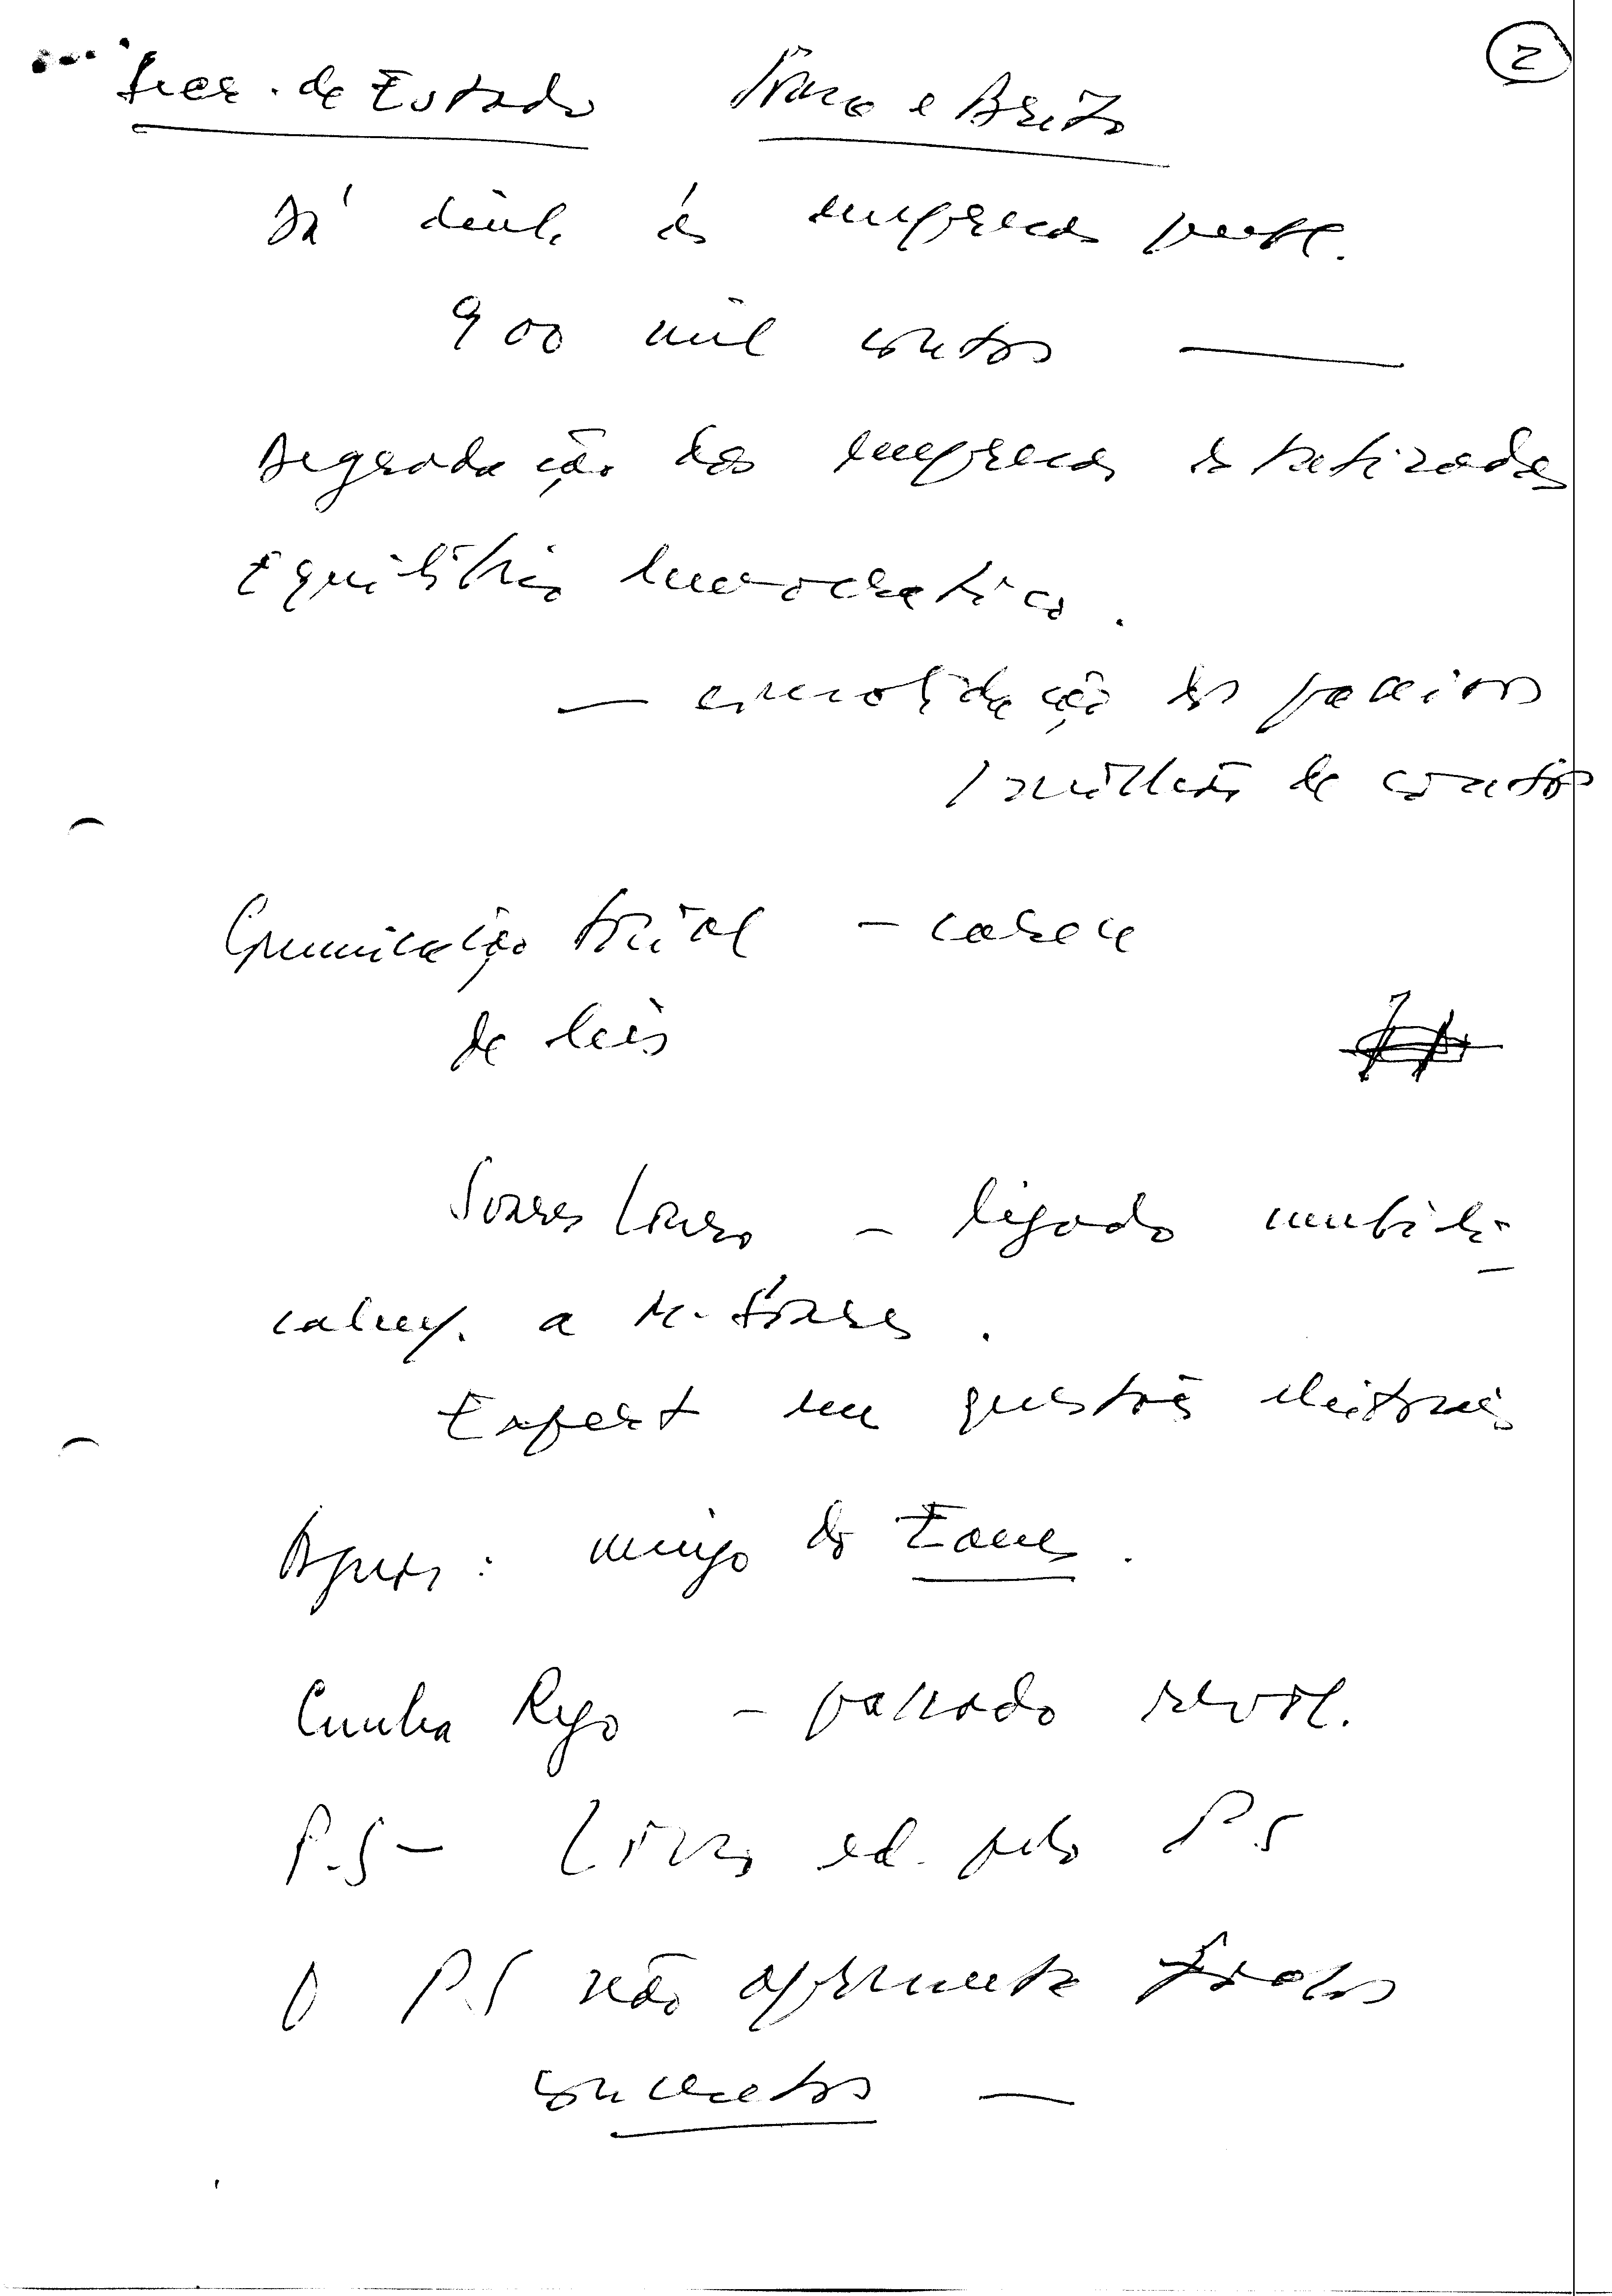 2
Secr. de Estado
Já deu às empresas part.
900 mil contos —
Degradação das empresas estatizadas
Equilíbrio burocrático.
— consolidação dos passivos
1 milhão de contos
Comunicação Social — carece
de leis
Soares Louro — ligado umbili-
calm. a M. Soares.
Expert em questões eleitorais
Agora: amigo do Eanes.
Cunha Rego — passado revol.
P.S — Livro ed. pelo P.S
O P.S não apresenta factos
concretos —